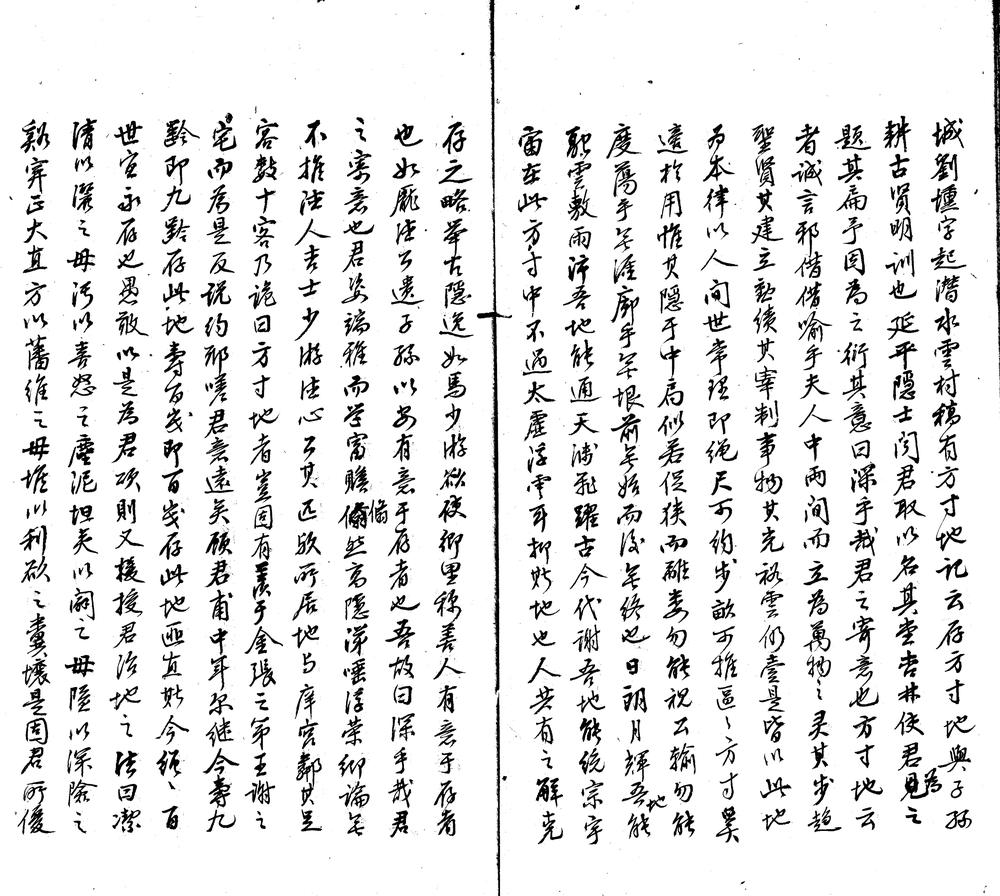 城劉壎字起潛水雲村稿有方寸地記云存方寸地與子孫
耕古賢明訓也延平隱士閔君取以名其堂杏林使君見為之
題其扁予因為之衍其意曰深乎哉君之寄意也方寸地云
者誠言邪借借喻乎夫人中兩間而立為萬物之灵其步趨
聖賢其建立勳績其宰制事物其充裕雲仍壹是皆以此地
為本律以人間世常理即繩尺可約步畝可推逼逼方寸奚
遠於用惟其隱于中局似若促狹而離婁勿能視公輸勿能
度蕩乎無涯廓乎無垠前無始而後無終也日明月輝吾地能
融雲敷雨沛吾地能通天淵飛躍古今代謝吾地能統宗宇
宙在此方寸中不過太虛浮雲耳抑斯地也人共有之解克
存之略舉古隱逸如馬少游欲使鄉里稱善人有意于存者
也如龐德公遺子孫以安有意于存者也吾故曰深乎哉君
之寄意也君姿端雅而學富贍翛然高隱涕唾浮榮鄉論無
不推法人吉士少游法心公其匹歟所居地与庠宮鄰其足
容數十客乃詭曰方寸地者豈固有羨于金張之第王謝之
宅而為是反說約邪嗟君意遠矣顧君甫中年尔继今壽九
齡即九齡存此地壽百歲即百歲存此地匪直斯今繩繩百
世宜永存也愚敢以是為君頌則又援授君治地之法曰潔
清以濯之毋污以喜怒之塵泥坦夷以闢之毋障以深險之
谿穽正大直方以藩維之毋堆以利欲之糞壤是固君所優